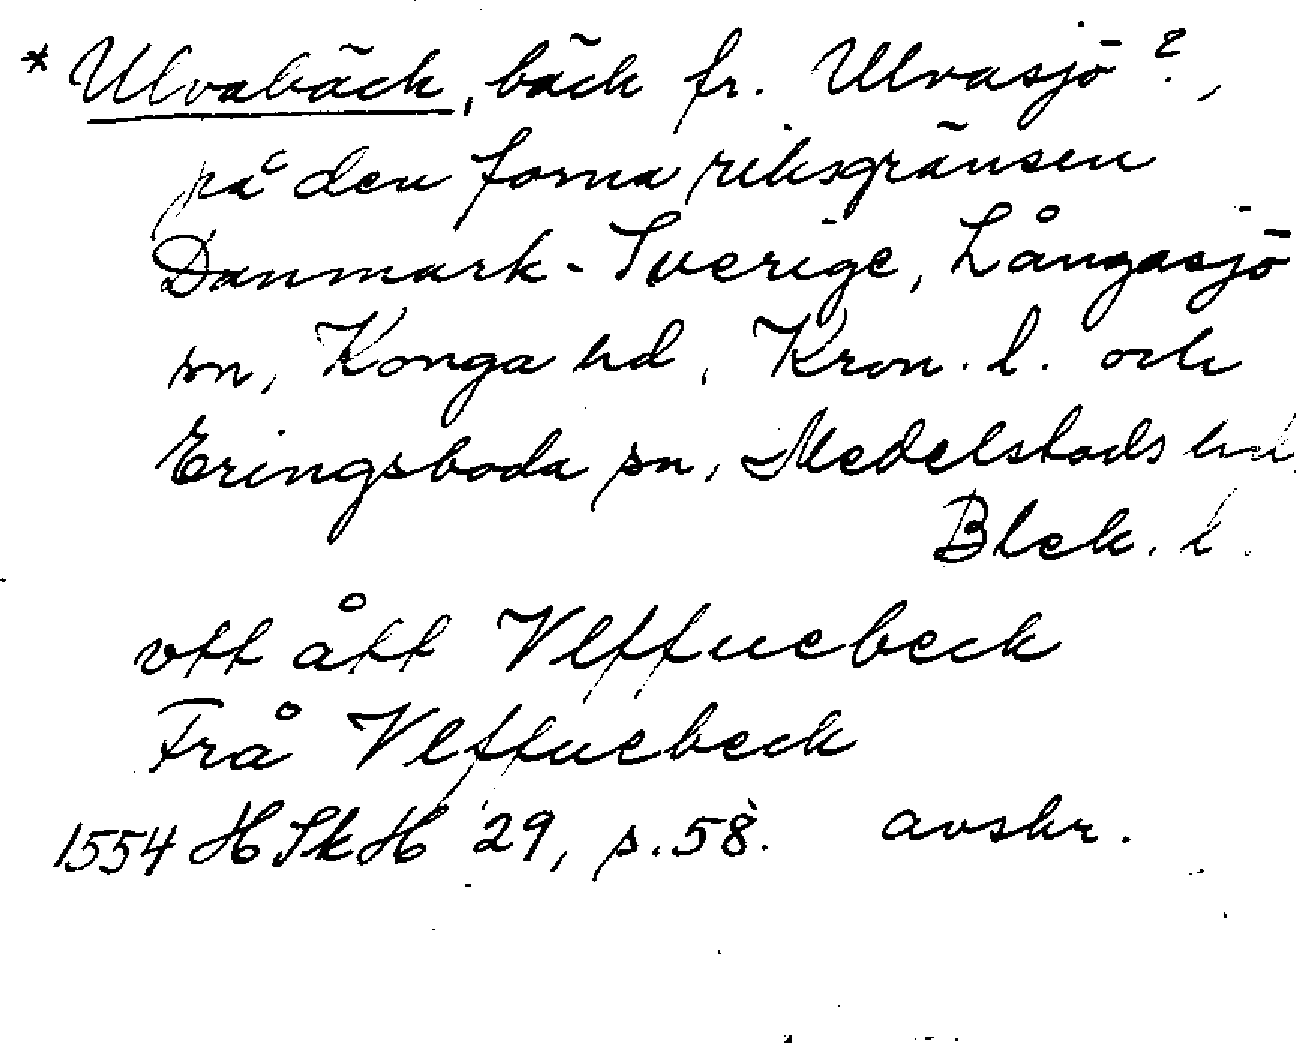 * Ulvabäck, bäck fr. Ulvasjö?,
på den forna riksgränsen
Danmark-Sverige, Långasjö
sn, Konga hd, Kron. l. och
Eringsboda sn, Medelstads hd,
Blek. l.
vtt átt Vlffuebeck
Frå Vlffuebeck
1554 HSkH 29, s. 58. avskr.